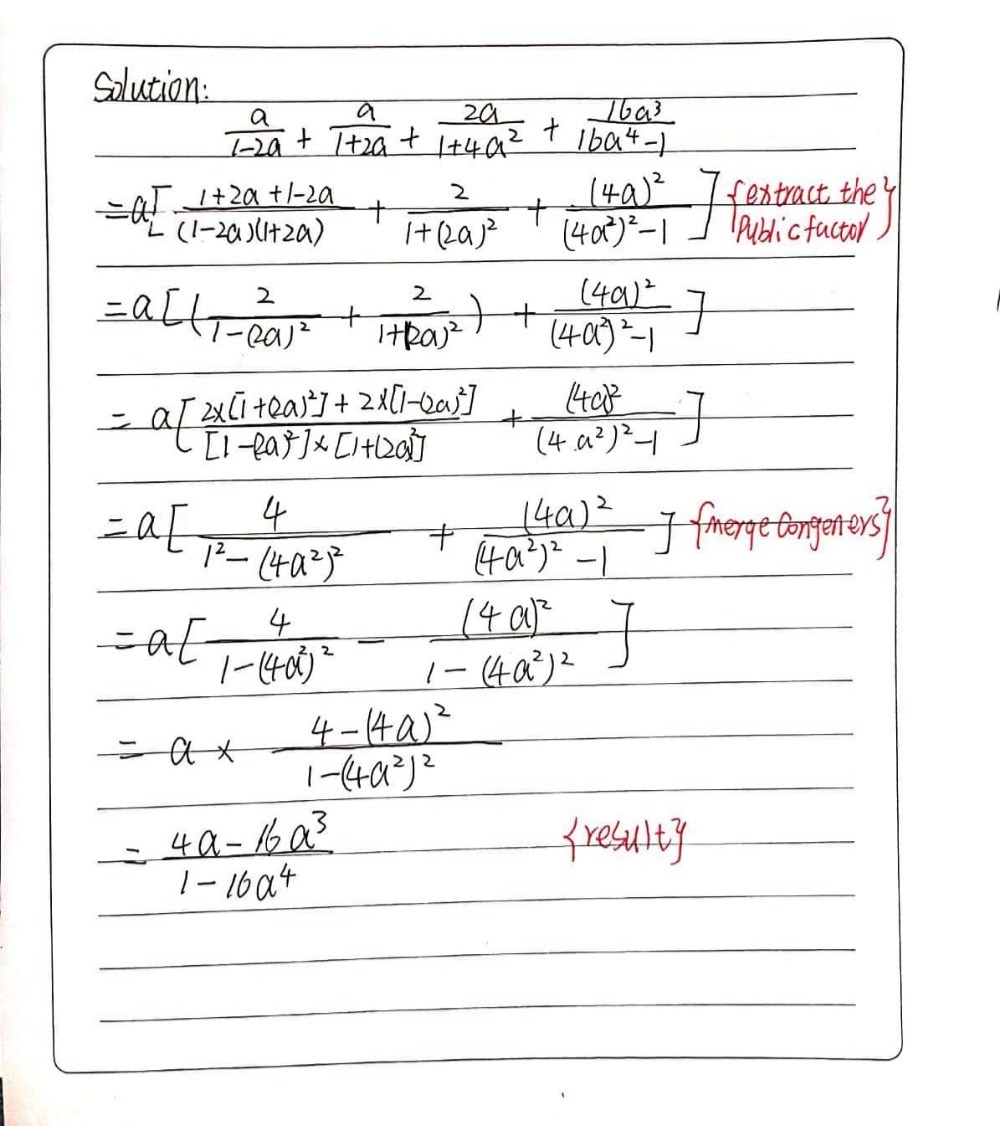 Solution:
a/(1-2a) + a/(1+2a) + 2a/(1+4a²) + 16a³/(16a⁴-1)
=a[ (1+2a+1-2a)/((1-2a)(1+2a)) + 2/(1+(2a)²) + (4a)²/((4a²)²-1) ] {extract the Public factor}
=a[( 2/(1-(2a)²) + 2/(1+(2a)²) ) + (4a)²/((4a²)²-1) ]
= a[ (2×[1+(2a)²]+2×[1-(2a)²])/([1-(2a)²]×[1+(2a)²]) + (4a)²/((4a²)²-1) ]
=a[ 4/(1²-(4a²)²) + (4a)²/((4a²)²-1) ] {merge Congeners}
=a[ 4/(1-(4a²)²) - (4a)²/(1-(4a²)²) ]
= a × (4-(4a)²)/(1-(4a²)²)
= (4a-16a³)/(1-16a⁴) {result}